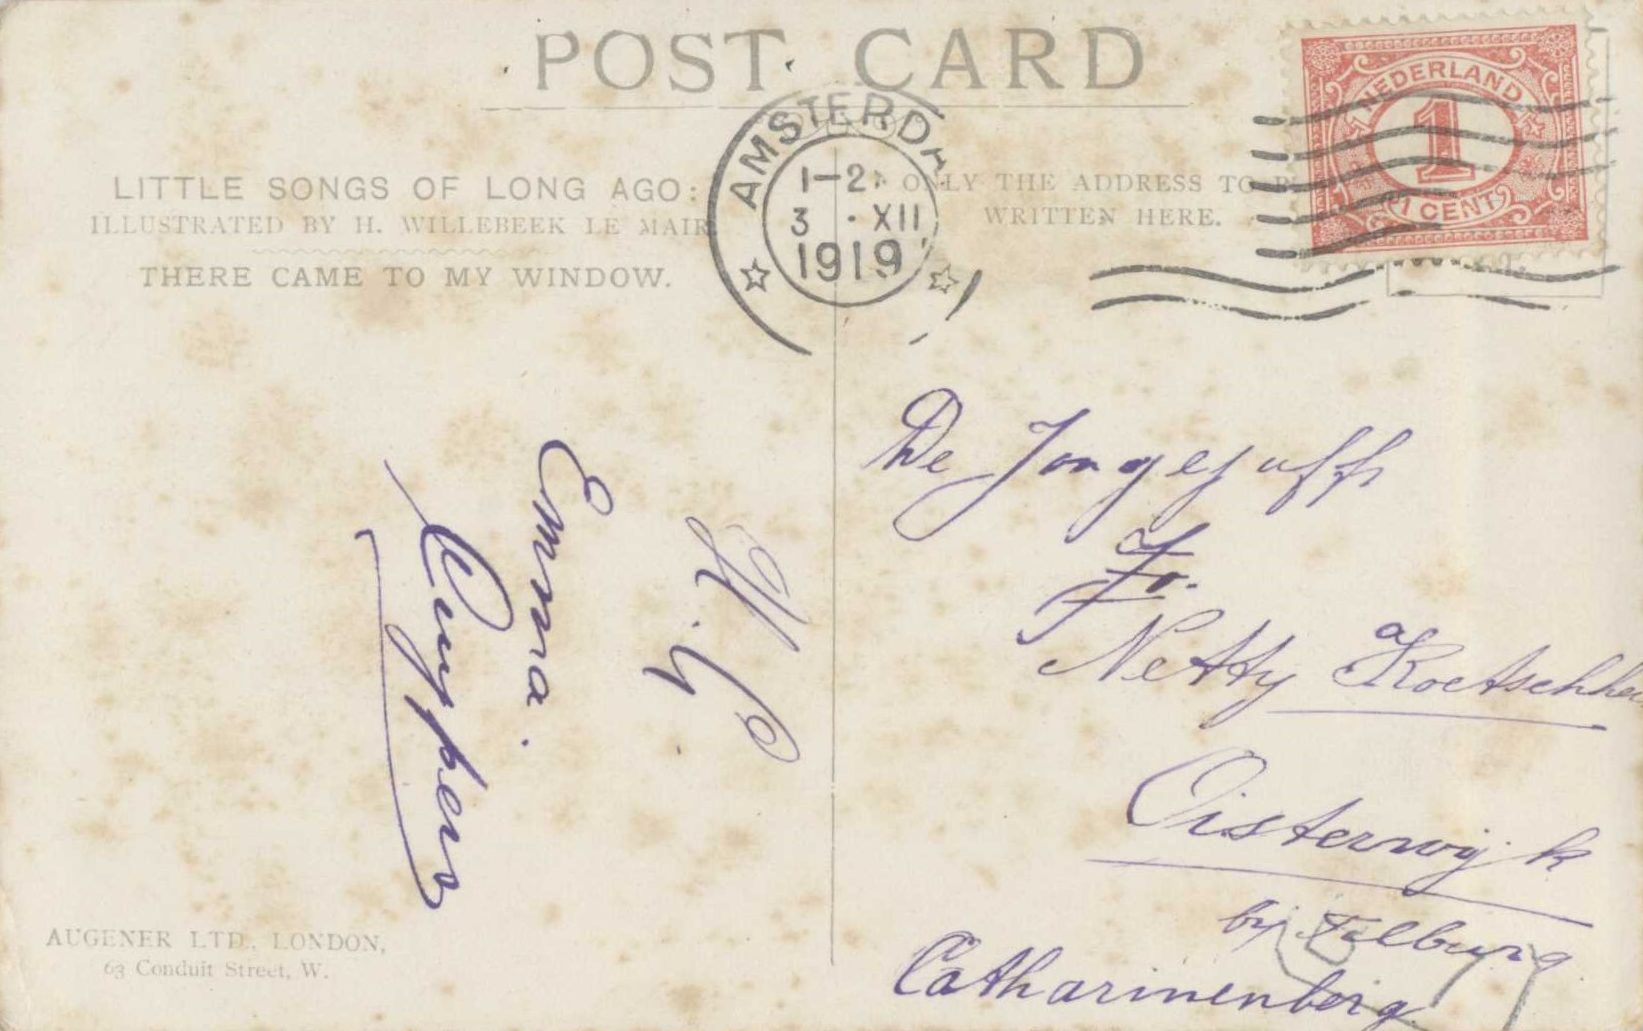 POST CARD
LITTLE SONGS OF LONG AGO:
ILLUSTRATED BY H. WILLEBEEK LE MAIR.
THERE CAME TO MY WINDOW.
AMSTERDA
1-2
3 · XII
1919
ONLY THE ADDRESS TO BE
WRITTEN HERE.
NEDERLAND
1
1 CENT
De Jongejuffr
Fr.
Netty
Oisterwijk
by Tilburg
Catharinenberg
H. G.
Emma.
Cuypers
AUGENER LTD., LONDON,
63 Conduit Street, W.